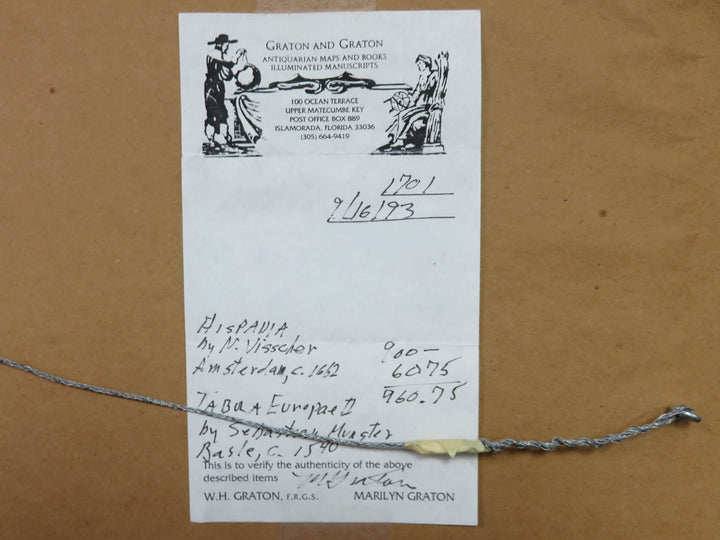 GRATON AND GRATON
ANTIQUARIAN MAPS AND BOOKS
ILLUMINATED MANUSCRIPTS
100 OCEAN TERRACE
UPPER MATECUMBE KEY
POST OFFICE BOX 889
ISLAMORADA, FLORIDA 33036
(305) 664-9419
1701
9/16/93
HISPANIA
by N. Visscher 900-
Amsterdam, c. 1652 6075
960.75
TABULA Europae II
by Sebastian Munster
Basle, c. 1540
This is to verify the authenticity of the above
described items M Graton
W.H. GRATON, F.R.G.S. MARILYN GRATON